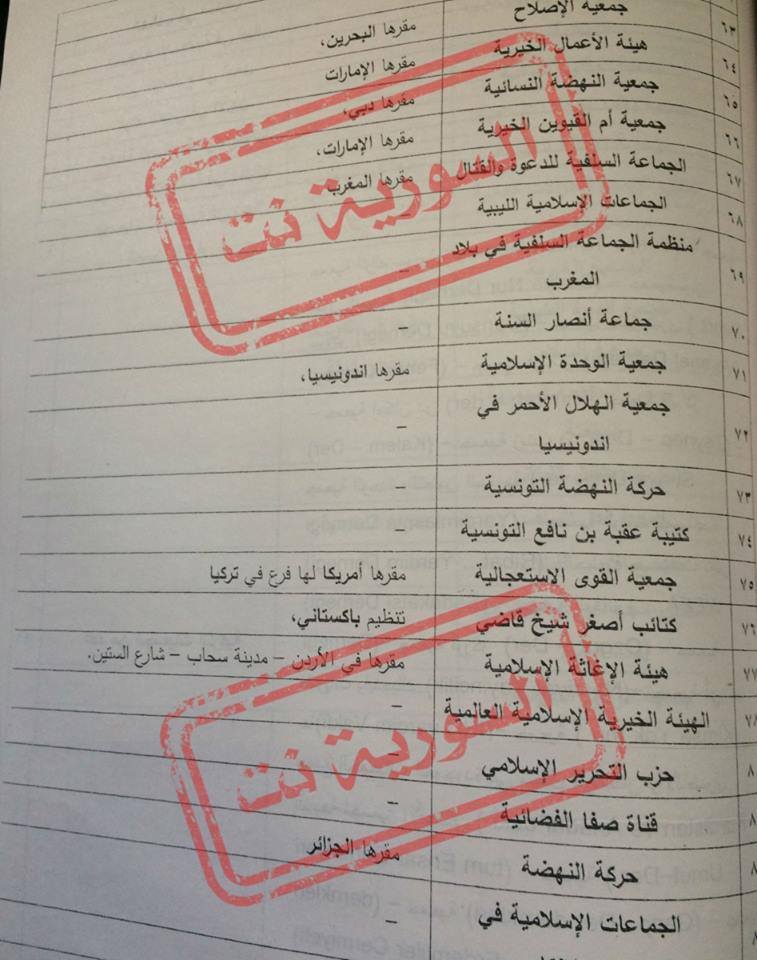 ٦٣ جمعية الإصلاح مقرها البحرين،
٦٤ هيئة الأعمال الخيرية مقرها الإمارات
٦٥ جمعية النهضة النسائية مقرها دبي،
٦٦ جمعية أم القيوين الخيرية مقرها الإمارات،
٦٧ الجماعة السلفية للدعوة والقتال مقرها المغرب
٦٨ الجماعات الإسلامية الليبية
٦٩ منظمة الجماعة السلفية في بلاد –
المغرب
٧٠ جماعة أنصار السنة –
٧١ جمعية الوحدة الإسلامية مقرها اندونيسيا،
٧٢ جمعية الهلال الأحمر في –
اندونيسيا
٧٣ حركة النهضة التونسية –
٧٤ كتيبة عقبة بن نافع التونسية –
٧٥ جمعية القوى الاستعجالية مقرها أمريكا لها فرع في تركيا
٧٦ كتائب أصغر شيخ قاضي تنظيم باكستاني،
٧٧ هيئة الإغاثة الإسلامية مقرها في الأردن – مدينة سحاب – شارع الستين.
٧٨ الهيئة الخيرية الإسلامية العالمية –
٨ حزب التحرير الإسلامي –
٨ قناة صفا الفضائية –
٨ حركة النهضة مقرها الجزائر
الجماعات الإسلامية في –
السورية نت
السورية نت